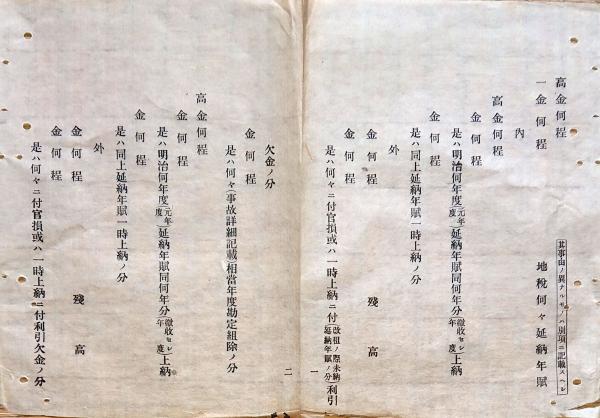 其事由ノ異ナルモノハ別項ニ記載スヘシ
地税何々延納年賦
高金何程
一金何程
内
高金何程
金何程
是ハ明治何年度(元年度)延納年賦同何年分(徴收セシ年度)上納
金何程
是ハ同上延納年賦一時上納ノ分
外
金何程 殘高
金何程
是ハ何々ニ付官損或ハ一時上納ニ付(改租ノ際未納延納年賦ノ分)利引
一
二
欠金ノ分
金何程
是ハ何々(事故詳細記載)相當年度勘定組除ノ分
高金何程
金何程
是ハ明治何年度(元年度)延納年賦同何年分(徴收セシ年度)上納
金何程
是ハ同上延納年賦一時上納ノ分
外
金何程 殘高
金何程
是ハ何々ニ付官損或ハ一時上納ニ付利引欠金ノ分